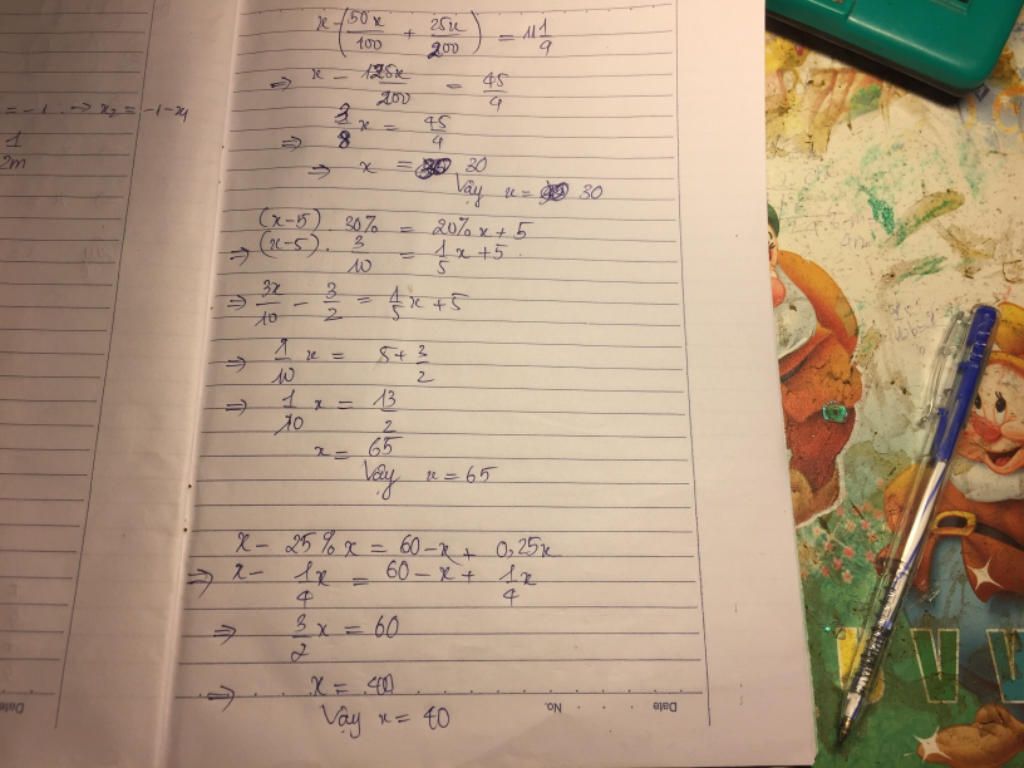 = -1 → x₂ = -1-x₁
1
2m
x - (50x/100 + 25x/200) = 11 1/4
⇒ x - 125x/200 = 45/4
⇒ 3/8 x = 45/4
⇒ x = 30
Vậy x = 30
(x-5) . 30% = 20% x + 5
⇒ (x-5) . 3/10 = 1/5 x + 5
⇒ 3x/10 - 3/2 = 1/5 x + 5
⇒ 1/10 x = 5 + 3/2
⇒ 1/10 x = 13/2
x = 65
Vậy x = 65
x - 25% x = 60 - x + 0,25x
⇒ x - 1/4 x = 60 - x + 1/4 x
⇒ 3/2 x = 60
⇒ x = 40
Vậy x = 40
Date
No.
Date